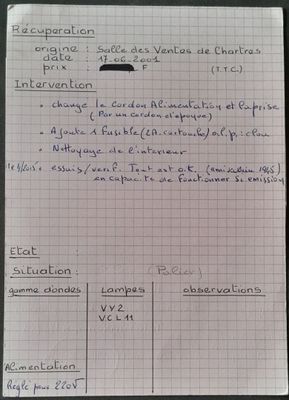 Récupération
origine : Salle des Ventes de Chartres
date : 17.06.2001
prix : F (T.T.C.)
Intervention
• change le cordon Alimentation et la prise
(Par un cordon d'époque)
• Ajoute 1 Fusible (2A. cartouche) a.l.p.: clou
• Nettoyage de l'interieur
essais/verif. Tout est o.k.
en capacité de fonctionner si emission
Etat :
Situation : (Palier)
gamme d'ondes Lampes observations
VY2
VCL11
Alimentation
Réglé pour 220V